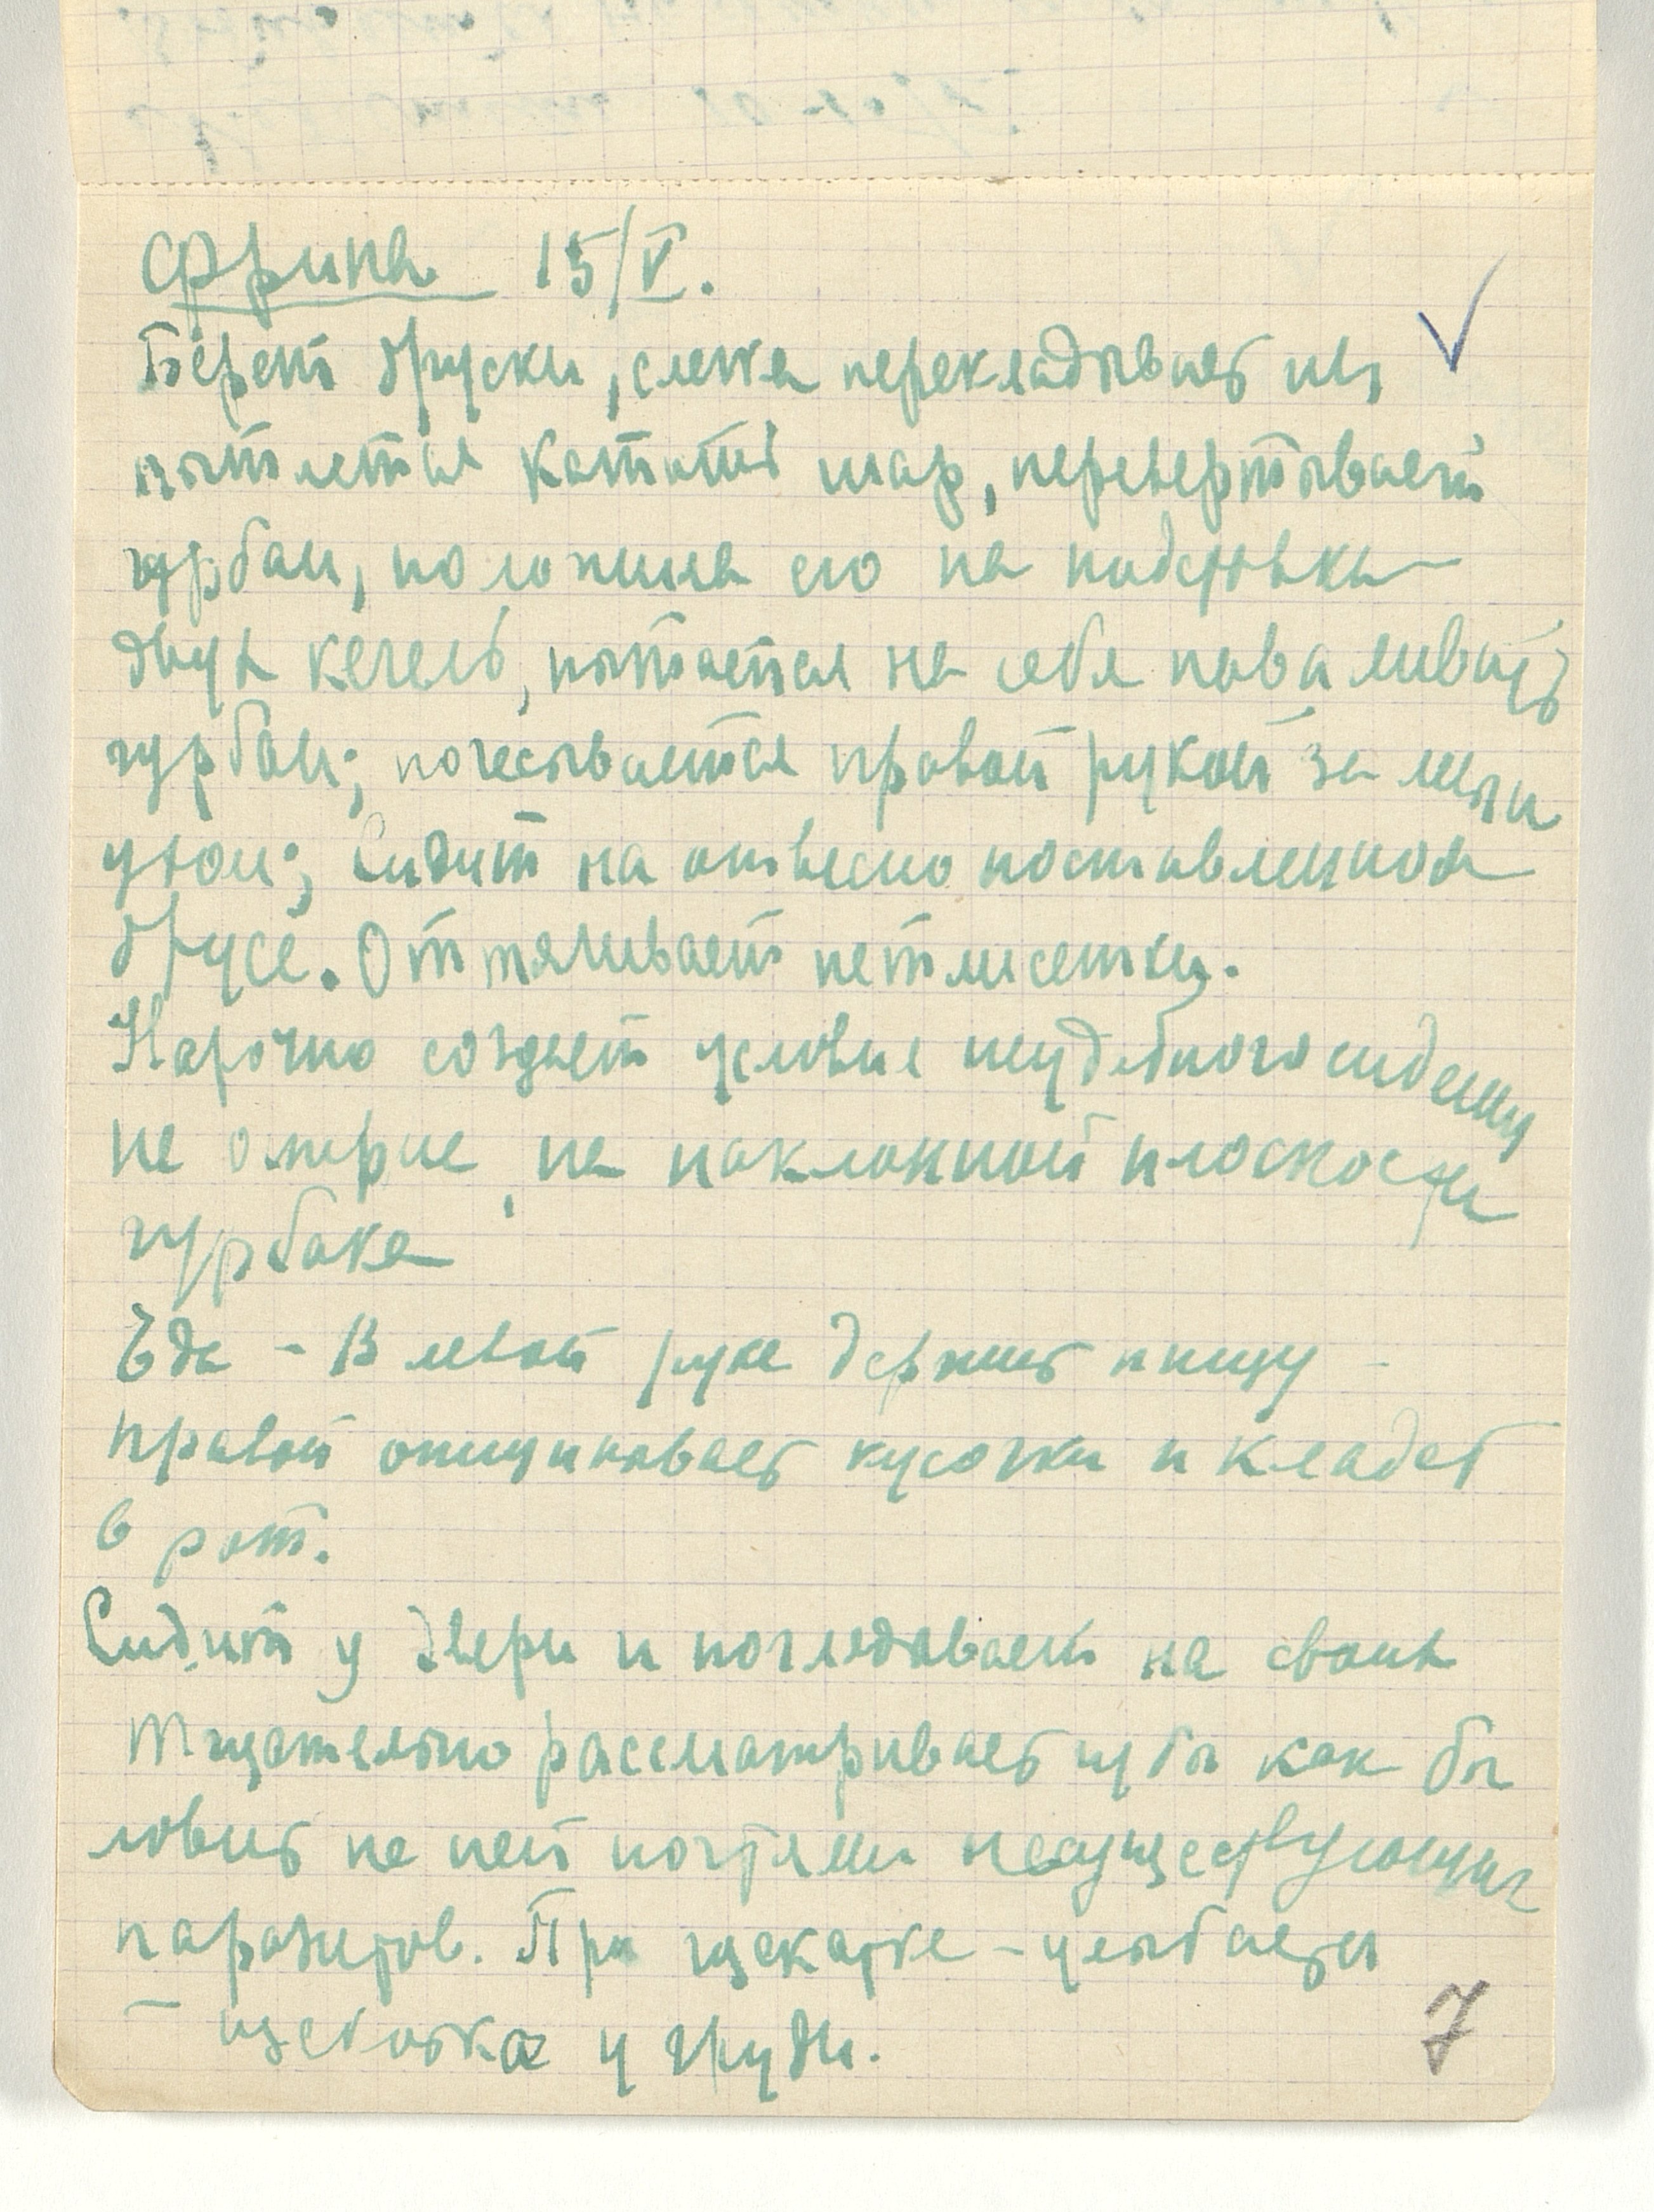 Фрина 15/V.
Берет бруски, слегка перекладывает их,
пытается катать шар, перевертывает
чурбан, положила его на подставки
двух кегель, пытается на себя наваливать
чурбан; почесывается правой рукой за
ухом; Сидит на отвесно поставленном
брусе. Оттягивает петли сетки.
Нарочно создает условия неудобного сиденья
на наклонной плоскости
чурбака
Еда – В левой руке держит пищу –
правой отщипывает кусочки и кладет
в рот.
Сидит у двери и поглядывает на своих
Тщательно рассматривает зубы как бы
ловит на ней ногтями несуществующих
паразитов. При щекотке – улыбается
– щекотка у груди.
7